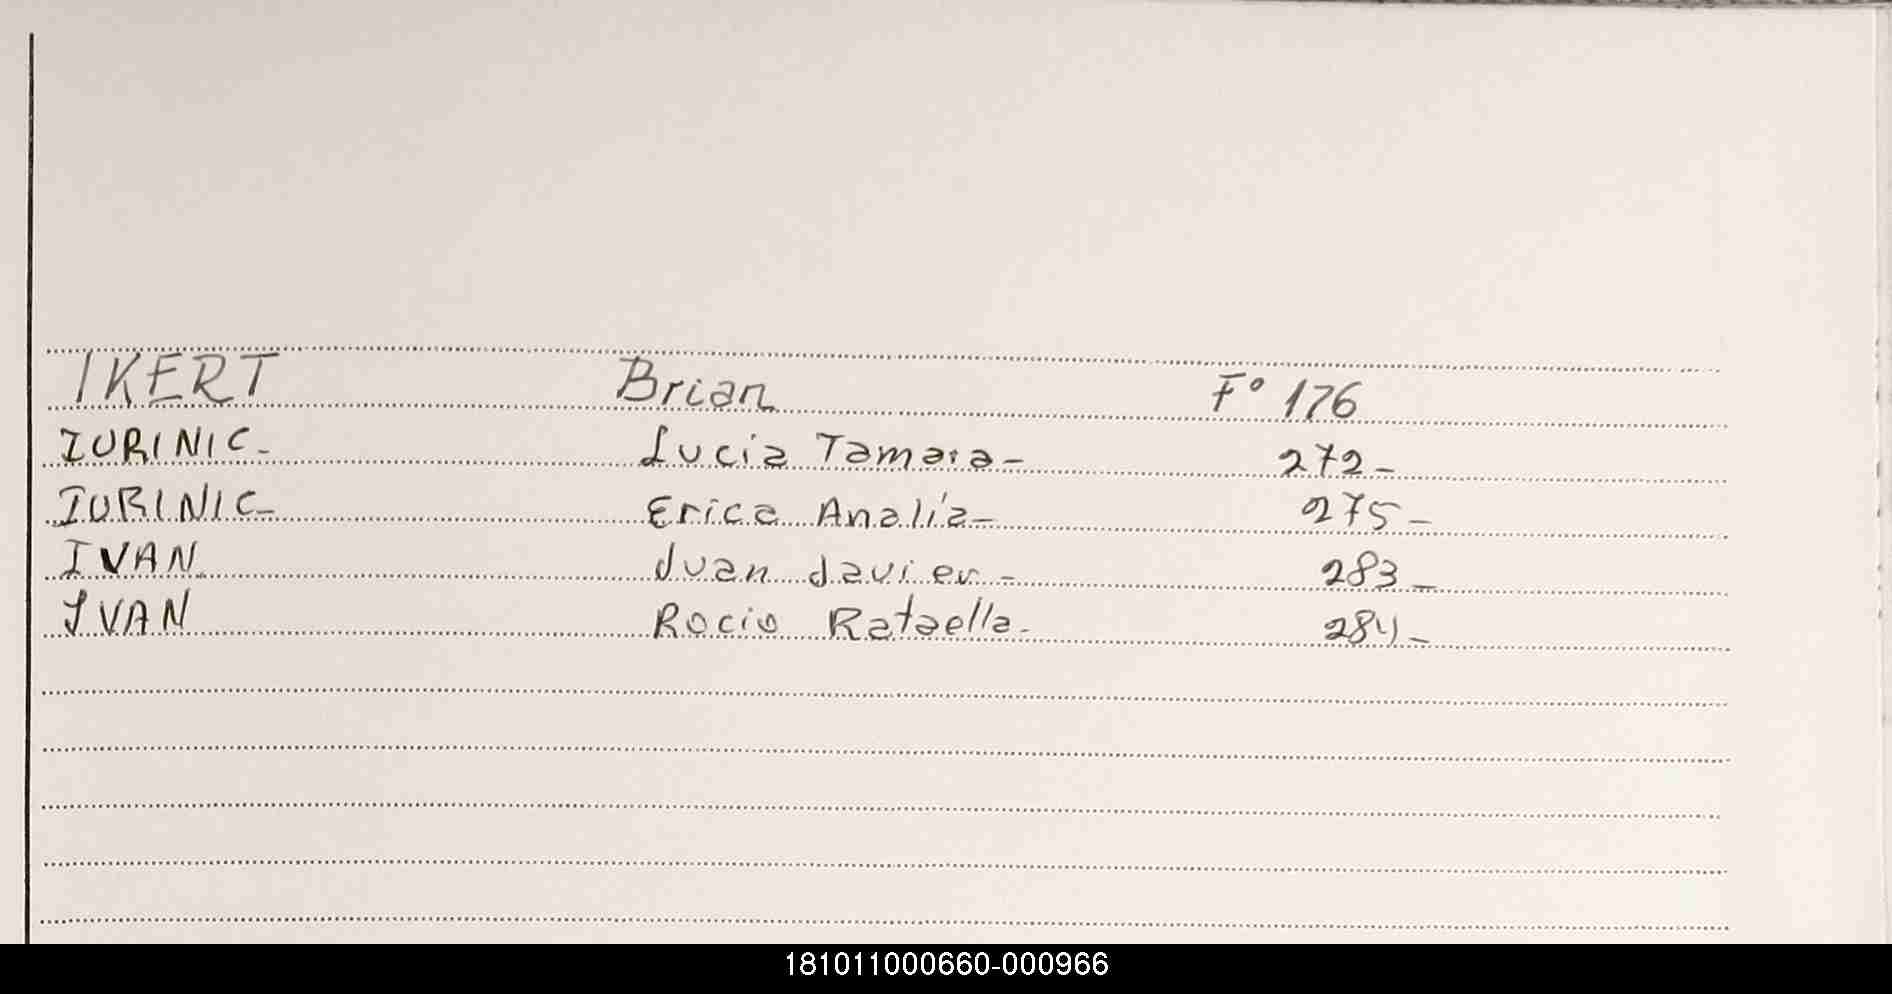 IKERT Brian Fº 176
IURINIC- Lucia Tamara- 272-
IURINIC- Erica Analía- 275-
IVAN Juan Javier- 283-
IVAN Rocio Rafaella- 284-
181011000660-000966